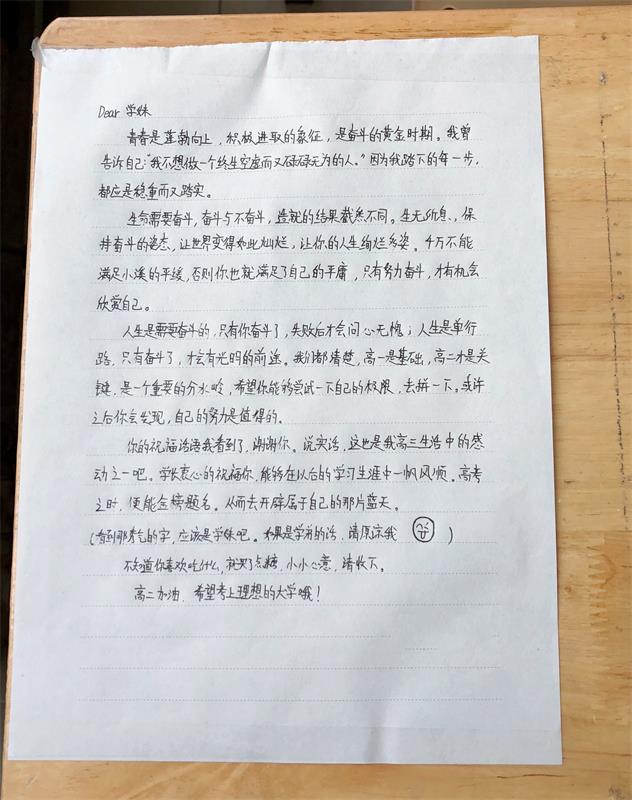 Dear 学妹
青春是蓬勃向上，积极进取的象征，是奋斗的黄金时期。我曾
告诉自己:"我不想做一个终生空虚而又碌碌无为的人。"因为我踏下的每一步，
都应是稳重而又踏实。
生命需要奋斗，奋斗与不奋斗，造就的结果截然不同。生无所息，保
持奋斗的姿态，让世界变得如此灿烂，让你的人生绚烂多姿。千万不能
满足小溪的平缓，否则你也就满足了自己的平庸，只有努力奋斗，才有机会
欣赏自己。
人生是需要奋斗的，只有你奋斗了，失败后才会问心无愧；人生是单行
路，只有奋斗了，才会有光明的前途。我们都清楚，高一是基础，高二才是关
键，是一个重要的分水岭，希望你能够尝试一下自己的极限，去拼一下。或许
之后你会发现，自己的努力是值得的。
你的祝福话语我看到了，谢谢你。说实话，这也是我高三生活中的感
动之一吧。学长衷心的祝福你，能够在以后的学习生涯中一帆风顺。高考
之时，便能金榜题名。从而去开辟属于自己的那片蓝天。
(看到那秀气的字，应该是学妹吧。如果是学弟的话，请原谅我 )
不知道你喜欢吃什么，就买了点糖，小小心意，请收下。
高二加油，希望考上理想的大学哦！